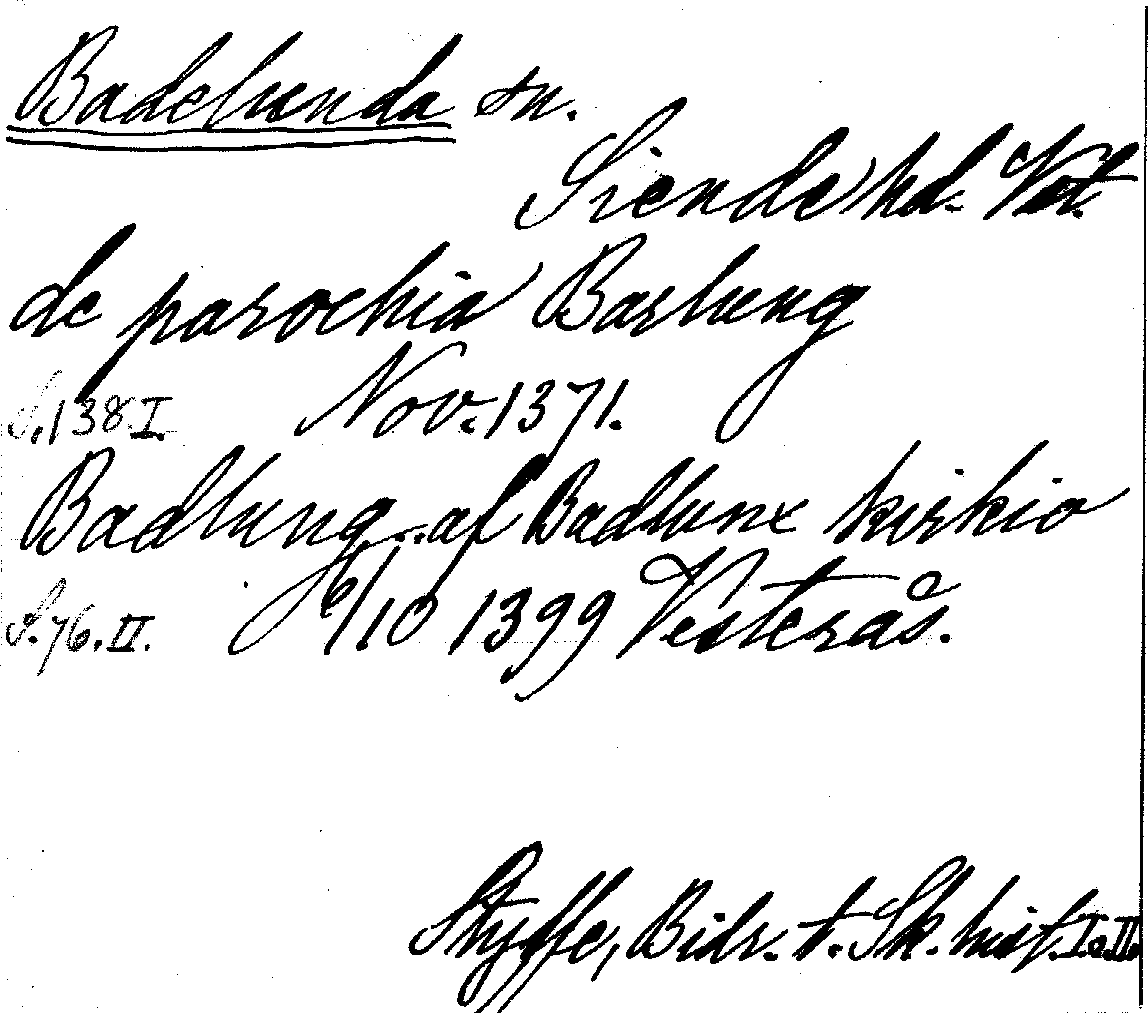 Badelunda sn.
Siende hd. Vst.
de parochia Barlung
S. 138 I. Nov. 1371.
Badlung...af Badlunx kirkio
S. 76. II. 6/10 1399 Vesterås.
Styffe, Bidr. t. Sk. hist. I o. II